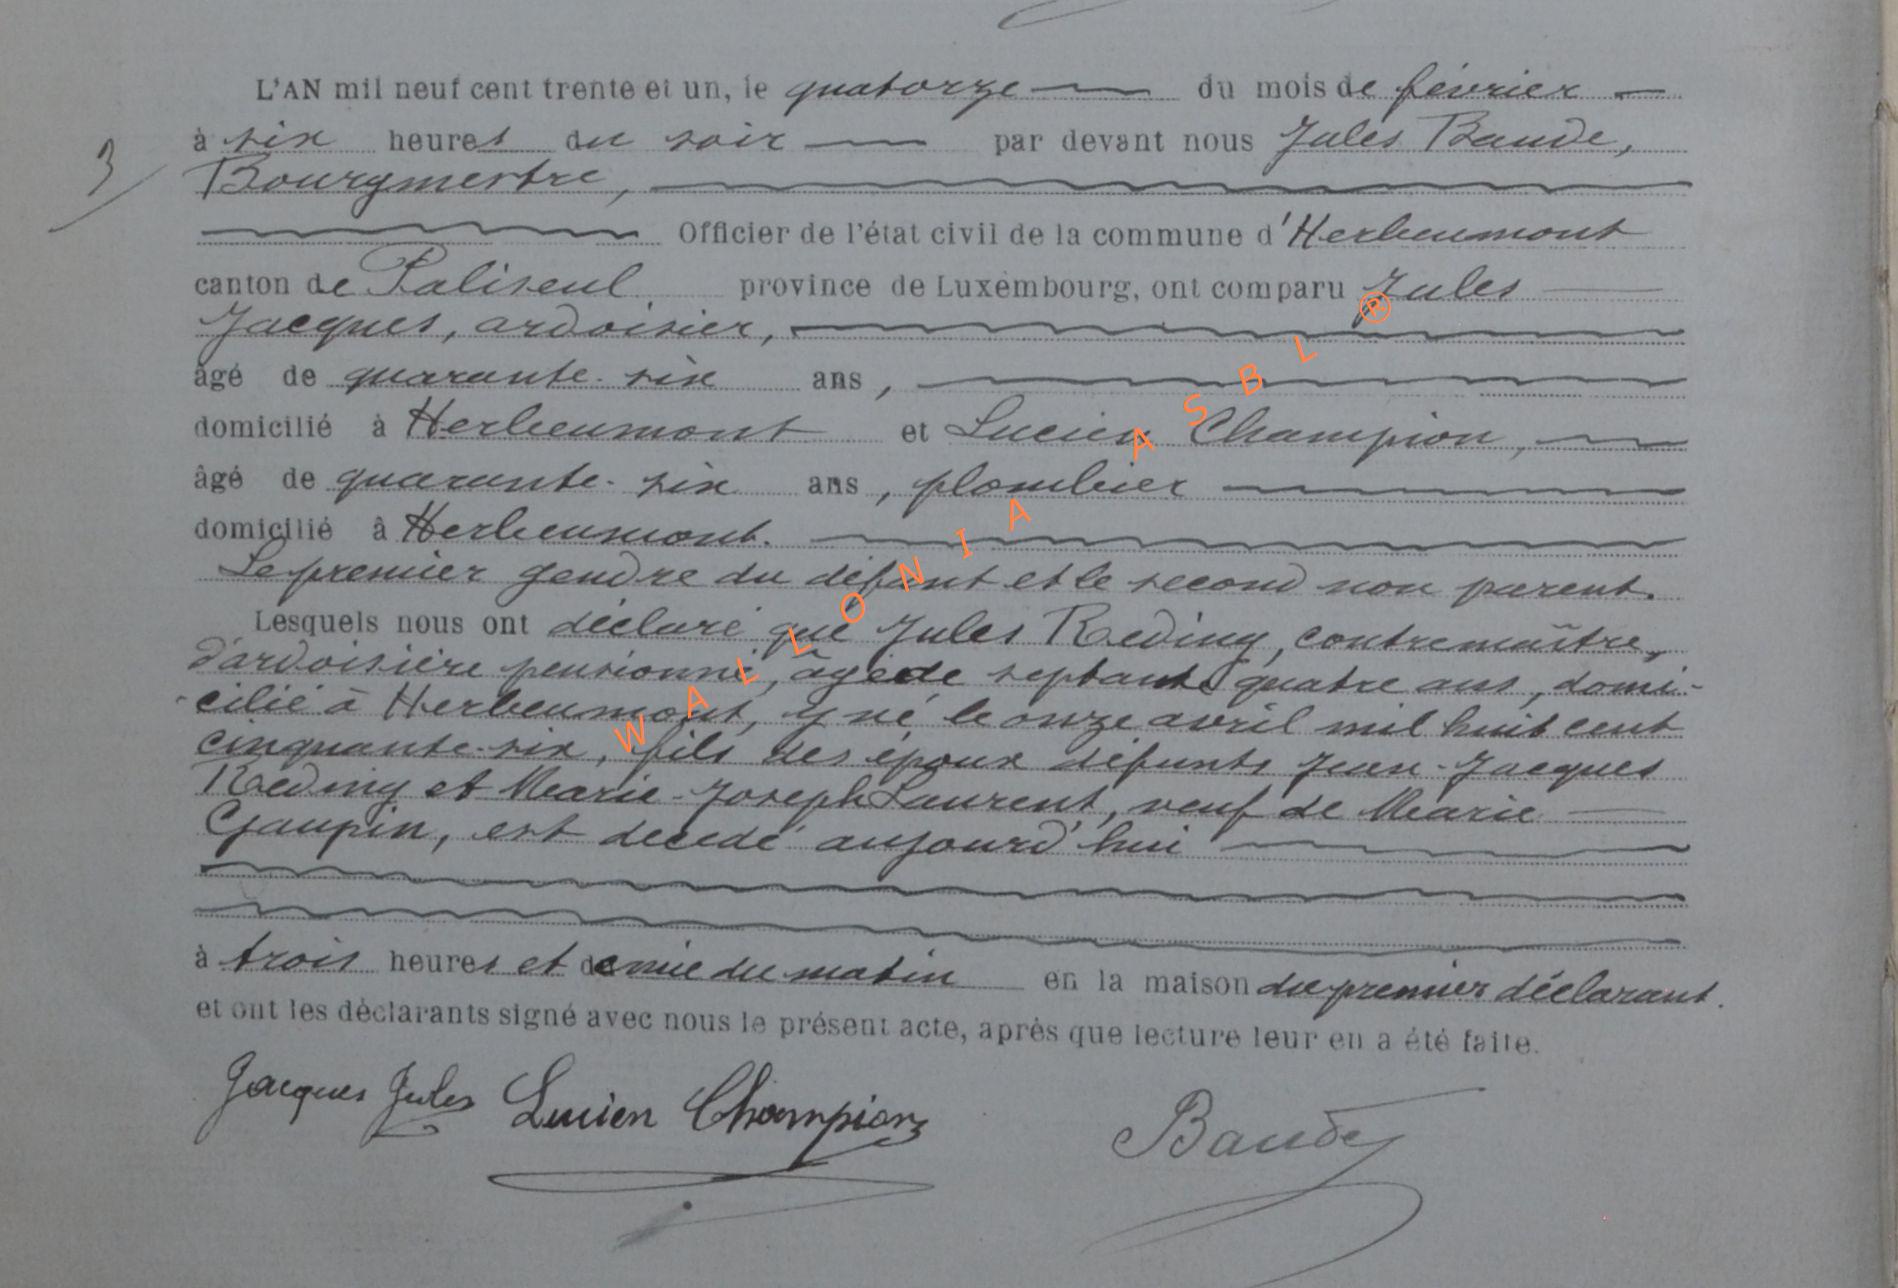 L'AN mil neuf cent trente et un, le quatorze du mois de février
à six heures du soir par devant nous Jules Baude,
3
Bourgmestre,
Officier de l'état civil de la commune d'Herbeumont
canton de Paliseul province de Luxembourg, ont comparu Jules
Jacques, ardoisier,
âgé de quarante-six ans,
domicilié à Herbeumont et Lucien Champion,
âgé de quarante-six ans, plombier
domicilié à Herbeumont.
Le premier gendre du défunt et le second non parent.
Lesquels nous ont déclaré que Jules Reding, contremaître,
d'ardoisière pensionné, âgé de septante quatre ans, domi-
cilié à Herbeumont, y né le onze avril mil huit cent
cinquante-six, fils des époux défunts Jean-Jacques
Reding et Marie-Joseph Laurent, veuf de Marie
Gaupin, est décédé aujourd'hui
à trois heures et demie du matin en la maison du premier déclarant.
et ont les déclarants signé avec nous le présent acte, après que lecture leur en a été faite.
Jacques Jules Lucien Champion Baude
WALLONIA ASBL ®